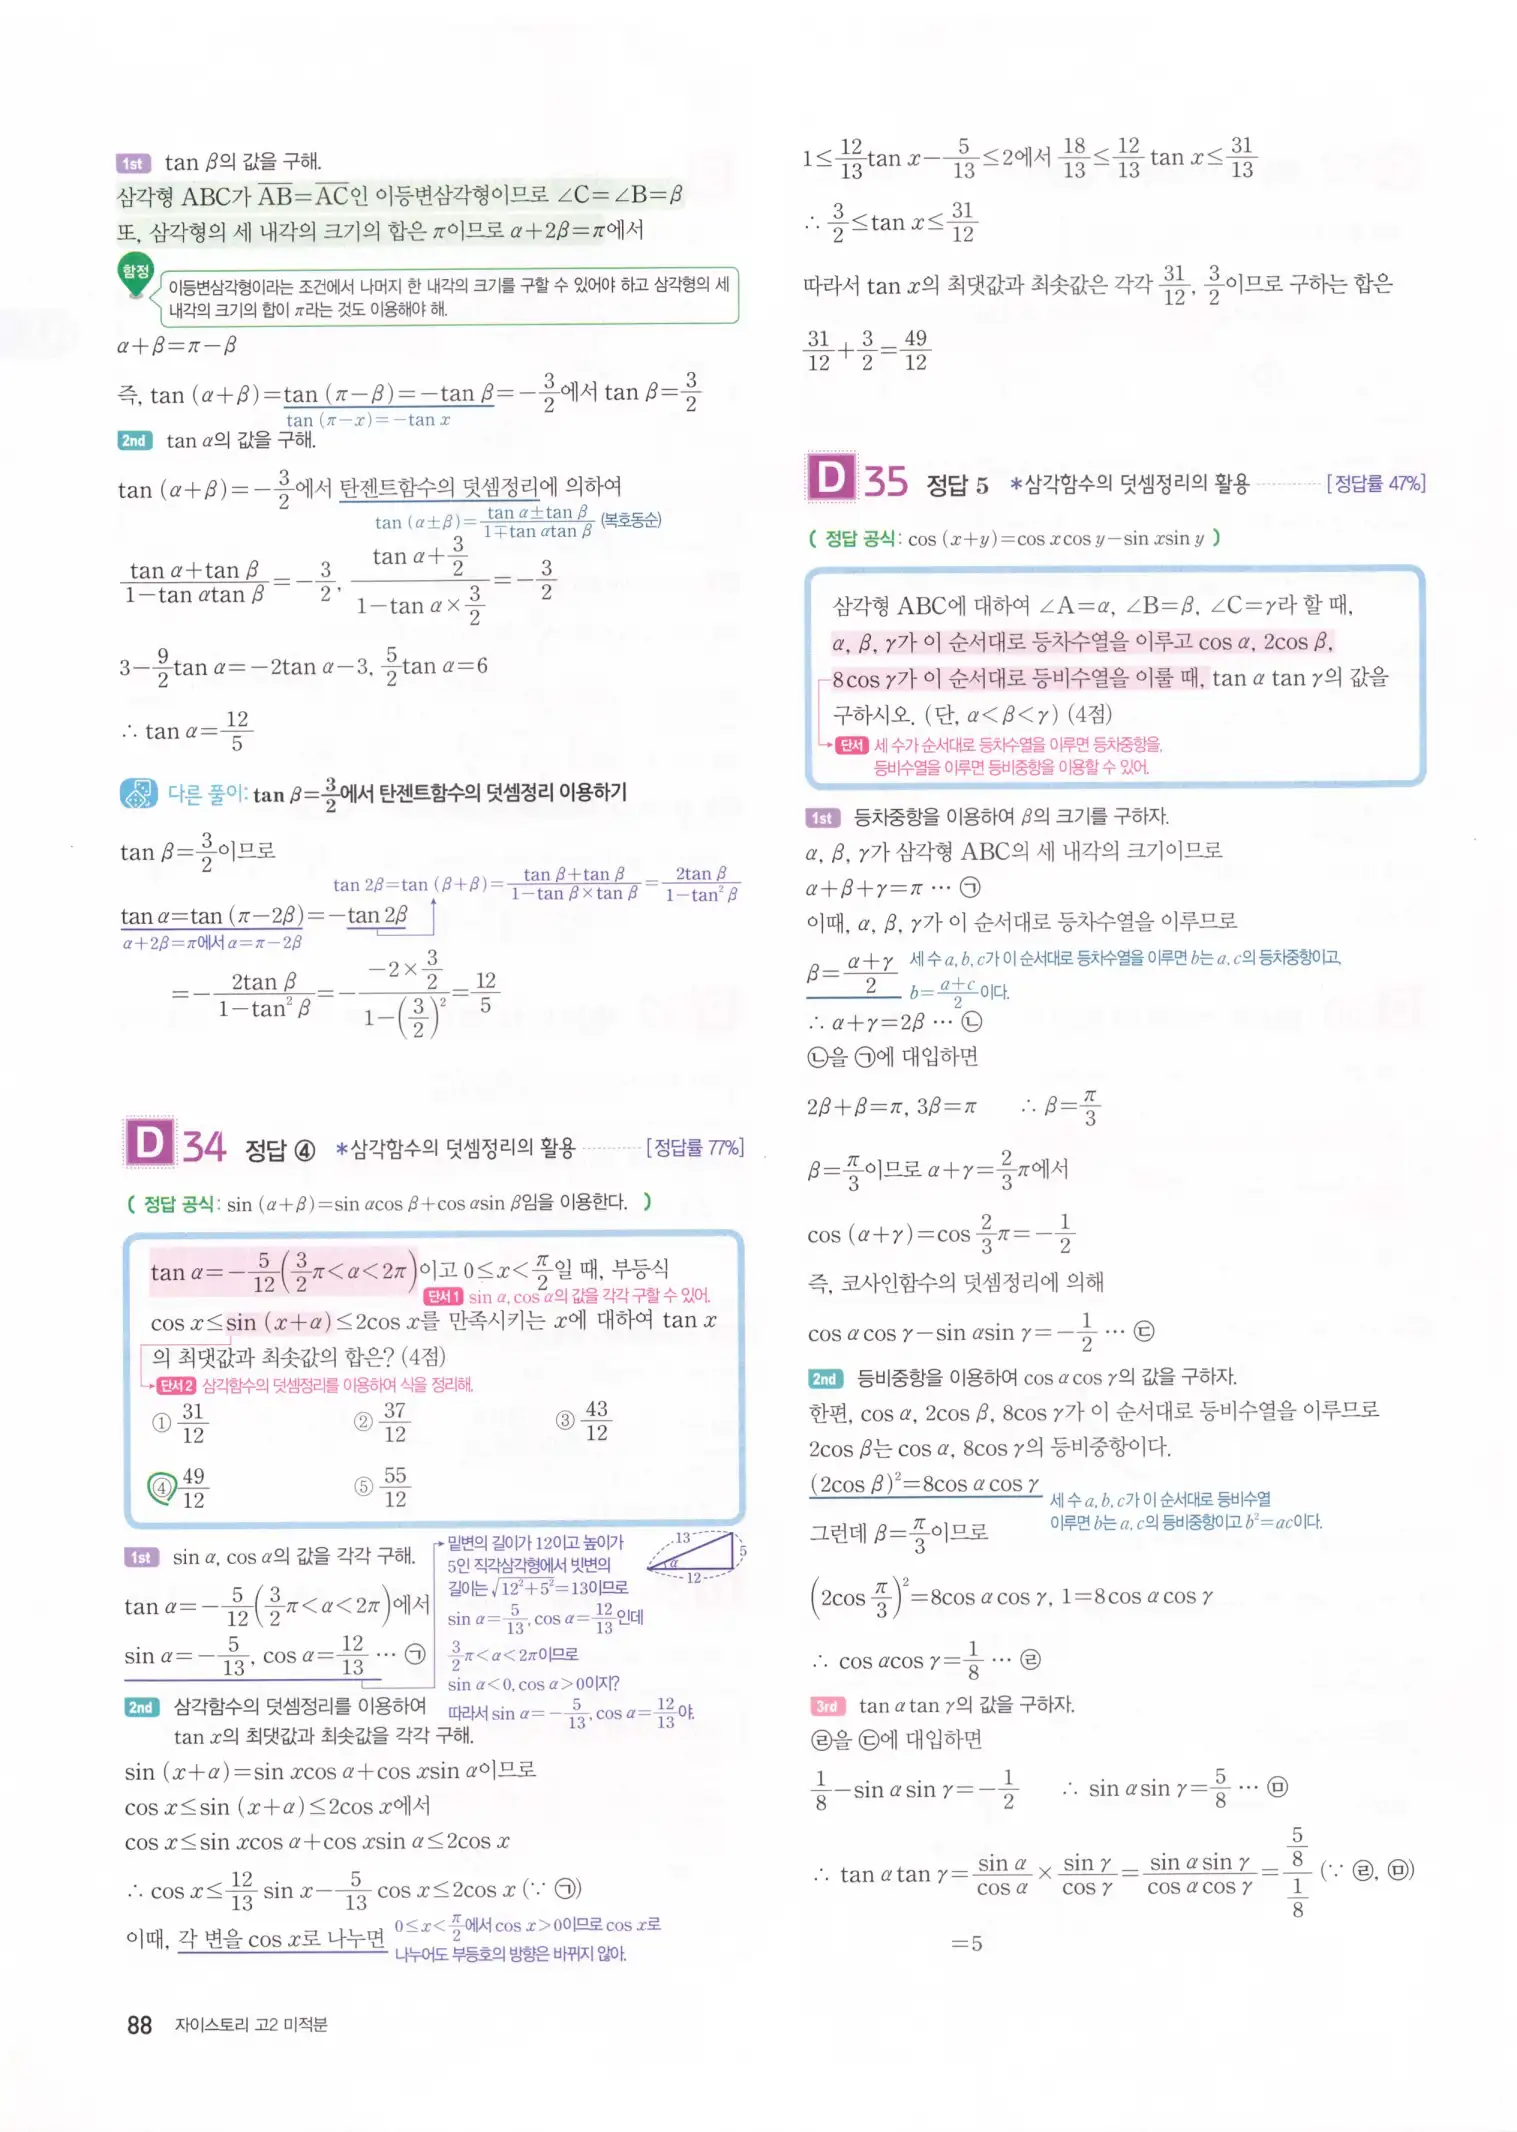 1st tan β의 값을 구해.
삼각형 ABC가 AB=AC인 이등변삼각형이므로 ∠C=∠B=β
또, 삼각형의 세 내각의 크기의 합은 π이므로 α+2β=π에서
함정 이등변삼각형이라는 조건에서 나머지 한 내각의 크기를 구할 수 있어야 하고 삼각형의 세
내각의 크기의 합이 π라는 것도 이용해야 해.
α+β=π−β
즉, tan (α+β)=tan (π−β)=−tan β=−3/2에서 tan β=3/2
tan (π−x)=−tan x
2nd tan α의 값을 구해.
tan (α+β)=−3/2에서 탄젠트함수의 덧셈정리에 의하여
tan (α±β)=(tan α±tan β)/(1∓tan αtan β) (복호동순)
(tan α+tan β)/(1−tan αtan β)=−3/2, (tan α+3/2)/(1−tan α×3/2)=−3/2
3−9/2tan α=−2tan α−3, 5/2tan α=6
∴ tan α=12/5
다른 풀이: tan β=3/2에서 탄젠트함수의 덧셈정리 이용하기
tan β=3/2이므로
tan 2β=tan (β+β)=(tan β+tan β)/(1−tan β×tan β)=2tan β/(1−tan² β)
tan α=tan (π−2β)=−tan 2β
α+2β=π에서 α=π−2β
=−2tan β/(1−tan² β)=−(−2×3/2)/(1−(3/2)²)=12/5
D 34 정답 ④ *삼각함수의 덧셈정리의 활용 [정답률 77%]
( 정답 공식: sin (α+β)=sin αcos β+cos αsin β임을 이용한다. )
tan α=−5/12(3/2π<α<2π)이고 0≤x<π/2일 때, 부등식
단서1 sin α, cos α의 값을 각각 구할 수 있어.
cos x≤sin (x+α)≤2cos x를 만족시키는 x에 대하여 tan x
의 최댓값과 최솟값의 합은? (4점)
단서2 삼각함수의 덧셈정리를 이용하여 식을 정리해.
① 31/12 ② 37/12 ③ 43/12
④ 49/12 ⑤ 55/12
1st sin α, cos α의 값을 각각 구해.
tan α=−5/12(3/2π<α<2π)에서
sin α=−5/13, cos α=12/13 ⋯ ㉠
밑변의 길이가 12이고 높이가
5인 직각삼각형에서 빗변의
길이는 √(12²+5²)=13이므로
sin α=5/13, cos α=12/13인데
3/2π<α<2π이므로
sin α<0, cos α>0이지?
따라서 sin α=−5/13, cos α=12/13야.
13
5
α
12
2nd 삼각함수의 덧셈정리를 이용하여
tan x의 최댓값과 최솟값을 각각 구해.
sin (x+α)=sin xcos α+cos xsin α이므로
cos x≤sin (x+α)≤2cos x에서
cos x≤sin xcos α+cos xsin α≤2cos x
∴ cos x≤12/13 sin x−5/13 cos x≤2cos x (∵ ㉠)
이때, 각 변을 cos x로 나누면
0≤x<π/2에서 cos x>0이므로 cos x로
나누어도 부등호의 방향은 바뀌지 않아.
88 자이스토리 고2 미적분
1≤12/13tan x−5/13≤2에서 18/13≤12/13 tan x≤31/13
∴ 3/2≤tan x≤31/12
따라서 tan x의 최댓값과 최솟값은 각각 31/12, 3/2이므로 구하는 합은
31/12+3/2=49/12
D 35 정답 5 *삼각함수의 덧셈정리의 활용 [정답률 47%]
( 정답 공식: cos (x+y)=cos xcos y−sin xsin y )
삼각형 ABC에 대하여 ∠A=α, ∠B=β, ∠C=γ라 할 때,
α, β, γ가 이 순서대로 등차수열을 이루고 cos α, 2cos β,
8cos γ가 이 순서대로 등비수열을 이룰 때, tan α tan γ의 값을
구하시오. (단, α<β<γ) (4점)
단서 세 수가 순서대로 등차수열을 이루면 등차중항을,
등비수열을 이루면 등비중항을 이용할 수 있어.
1st 등차중항을 이용하여 β의 크기를 구하자.
α, β, γ가 삼각형 ABC의 세 내각의 크기이므로
α+β+γ=π ⋯ ㉠
이때, α, β, γ가 이 순서대로 등차수열을 이루므로
β=(α+γ)/2 세 수 a, b, c가 이 순서대로 등차수열을 이루면 b는 a, c의 등차중항이고,
b=(a+c)/2이다.
∴ α+γ=2β ⋯ ㉡
㉡을 ㉠에 대입하면
2β+β=π, 3β=π ∴ β=π/3
β=π/3이므로 α+γ=2/3π에서
cos (α+γ)=cos 2/3π=−1/2
즉, 코사인함수의 덧셈정리에 의해
cos α cos γ−sin αsin γ=−1/2 ⋯ ㉢
2nd 등비중항을 이용하여 cos α cos γ의 값을 구하자.
한편, cos α, 2cos β, 8cos γ가 이 순서대로 등비수열을 이루므로
2cos β는 cos α, 8cos γ의 등비중항이다.
(2cos β)²=8cos α cos γ
세 수 a, b, c가 이 순서대로 등비수열
이루면 b는 a, c의 등비중항이고 b²=ac이다.
그런데 β=π/3이므로
(2cos π/3)²=8cos α cos γ, 1=8cos α cos γ
∴ cos αcos γ=1/8 ⋯ ㉣
3rd tan α tan γ의 값을 구하자.
㉣을 ㉢에 대입하면
1/8−sin α sin γ=−1/2 ∴ sin α sin γ=5/8 ⋯ ㉤
∴ tan α tan γ=sin α/cos α×sin γ/cos γ=(sin α sin γ)/(cos α cos γ)=(5/8)/(1/8) (∵ ㉣, ㉤)
=5